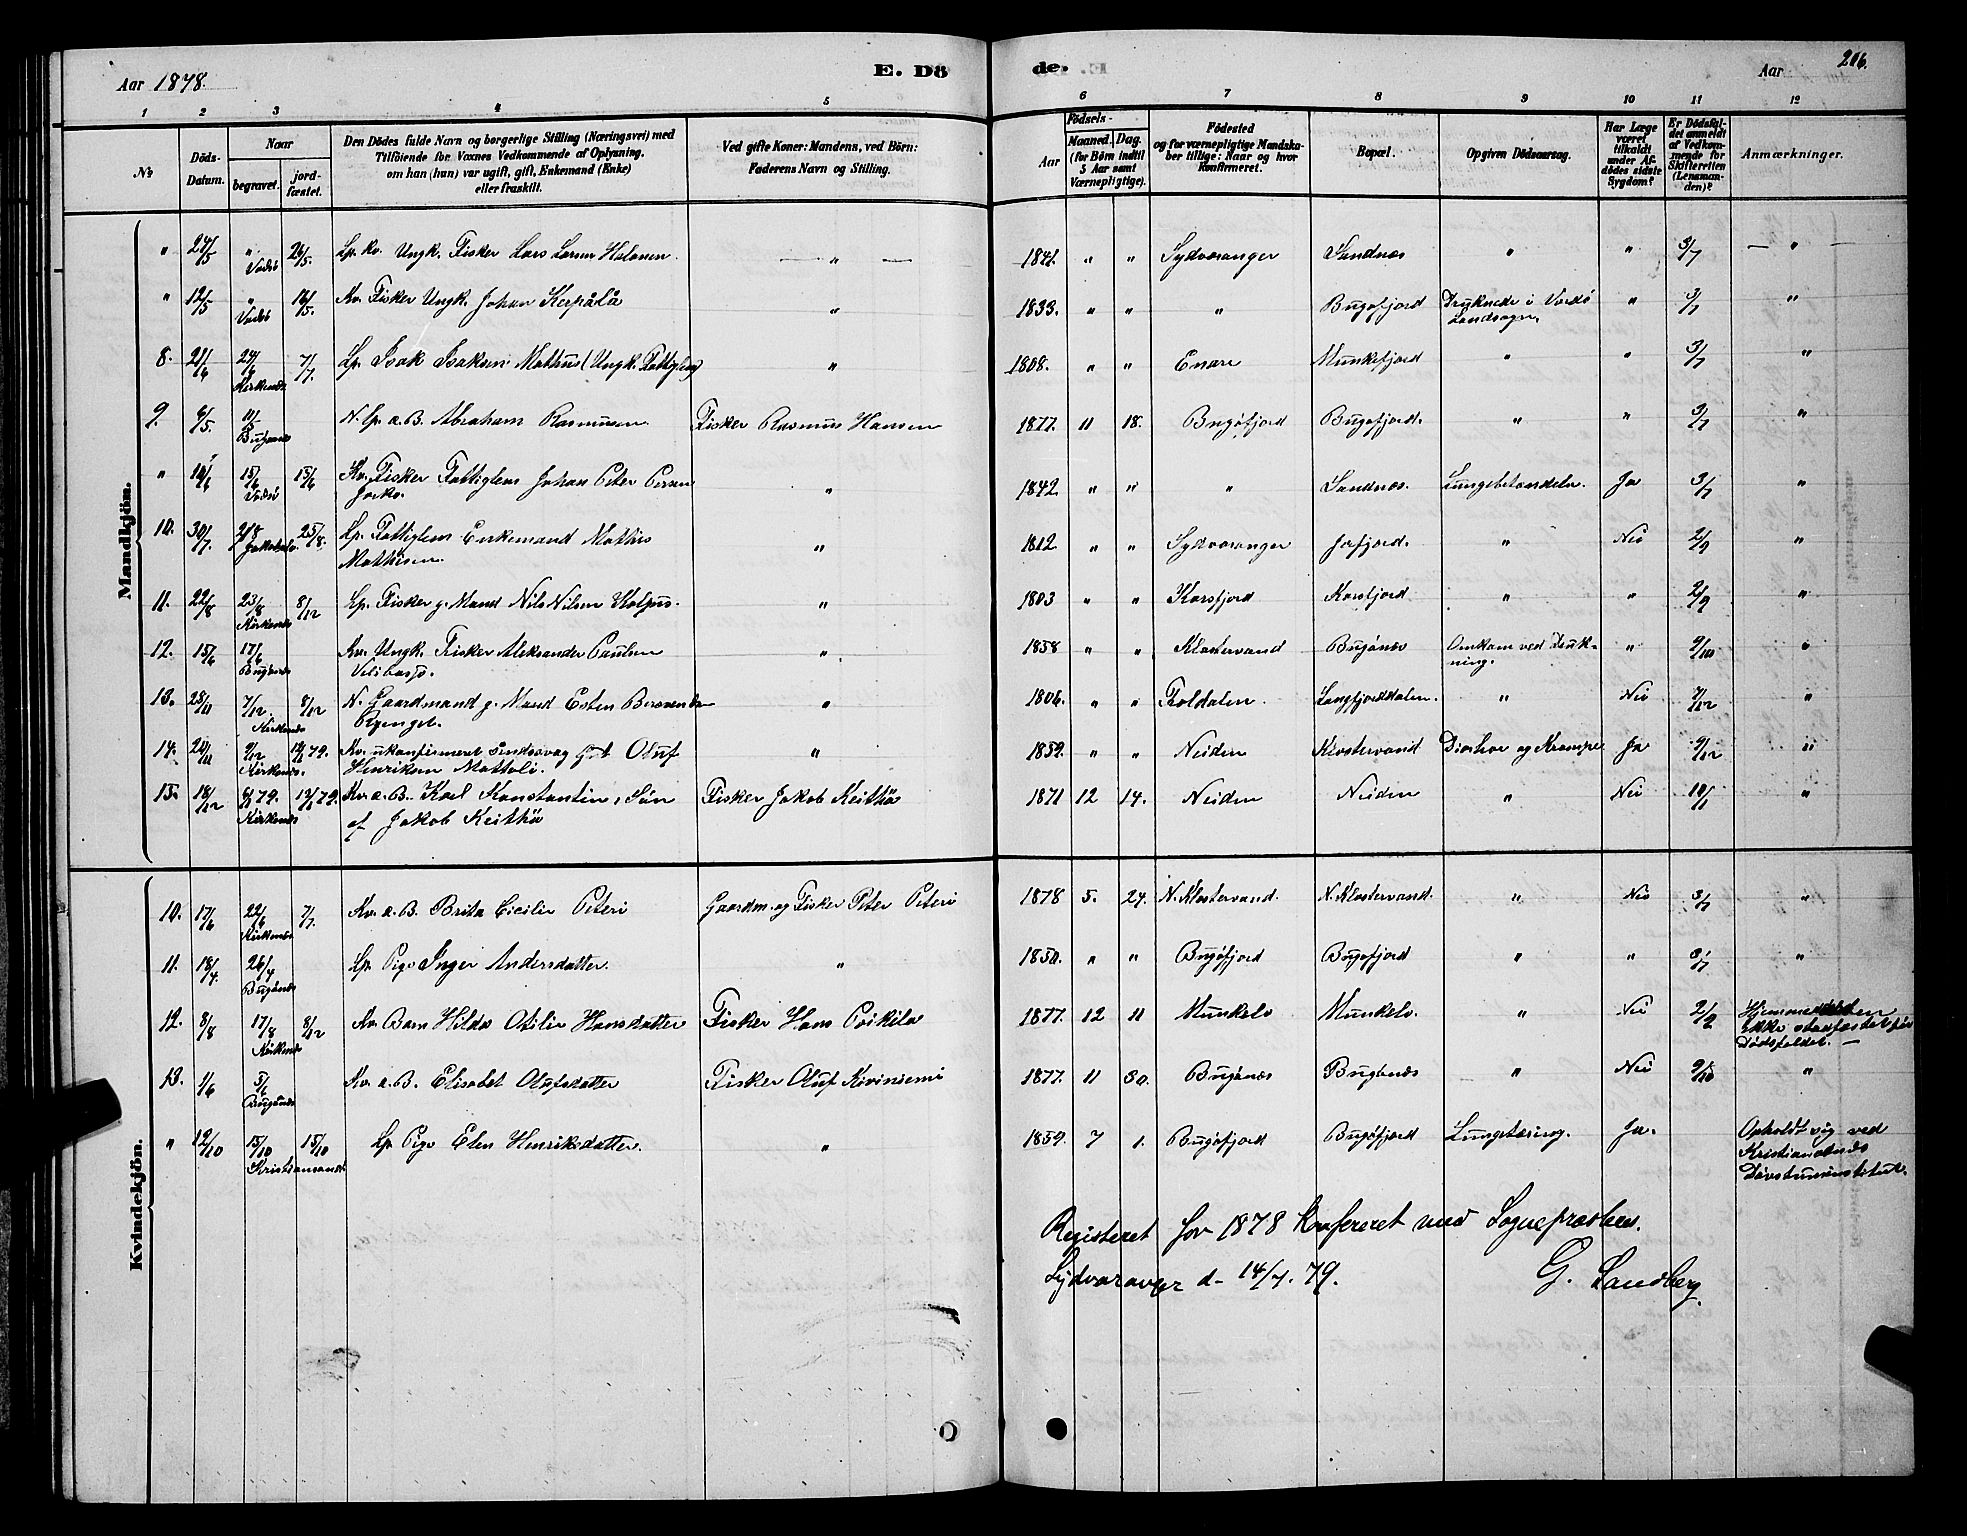 Aar 1878. E. Dö
de. Aar 216.
1 2 3 4 5 6 7 8 9 10 11 12
No
Döds-Datum.
Naar
begravet.
jord-fæstet.
Den Dödes fulde Navn og borgerlige Stilling (Næringsvei) med
Tilföiende for Voxnes Vedkommende af Oplysning,
om han (hun) var ugift, gift, Enkemand (Enke)
eller fraskilt.
Ved gifte Koner: Mandens, ved Börn:
Faderens Navn og Stilling.
Födsels-
Aar
Maaned. Dag.
(for Börn indtil
5 Aar samt
Værnepligtige).
Födested
og for værnepligtige Mandska-
ber tillige: Naar og hvor
Konfirmeret.
Bopæl.
Opgiven Dödsaarsag.
Har Læge
været
tilkaldt
under Af-
dödes sidste
Sygdom?
Er Dödsfal-
det anmeldt
af Vedkom-
mende for
Skifteretten
(Lensman-
den)?
Anmærkninger.
Mandkjön.
" 24/5 " Vadsö 26/5. Lp. kv. Ungk. Fisker Lars Larsen Halonen. — " — 1841. " " Sydvaranger Sandnæs " " 3/7 — " —
" 12/5 " Vadsö 16/5. Kv. Fisker Ungk. Johan Kerpälä " 1833. " " " Bugöfjord Druknede i Vardö " 3/7 "
Landsogn.
8. 21/6 24/6 Kirkenæs 7/7. Lp. Isak Isaksen Mathus (Ungk. Fattiglem) " 1808. " " Enare Munkefjord " " 3/7 "
9. 6/5. 11/5 Bugönæs N. Lp. a. B. Abraham Rasmussen. Fisker Rasmus Hansen 1877. 11 18. Bugöfjord Bugöfjord. " " 3/7 "
" 10/6 15/6 Vadsö 15/6 Kv. Fisker Fattiglem Johan Peter Persen " 1842 " " " Sandnæs. Lungebetændelse. Ja 3/7 "
10. 30/7. 2/8 Jakobselv 25/8. Lp. Fattiglem Enkemand Mathis " 1812 " " Sydvaranger Jarfjord. " Nei 2/9 "
Mathisen.
11. 22/8 23/8 Kirkenæs 8/12 Lp. Fisker g. Mand Nils Nilsen Kolpus. " 1803 " " Korsfjord Korsfjord " " 2/9 "
12. 15/6 17/6 Bugönæs Kv. Ungk. Fisker Aleksander Paulsen " 1858 " " Klostervand Bugönæs Omkom ved Druk- " 9/10 "
ning.
13. 28/11 7/12. Kirkenæs 8/12 N. Gaardmand g. Mand Esten " 1806. " " Foldalen. Langfjorddalen. " Nei 7/12 "
14. 20/11 9/12 Kirkenæs. 79. Kv. ukonfirmeret sindssvag Gut Oluf " 1859. " " Neiden Klostervand og Krampe Ja 9/12 "
Henriksen Mattala.
15. 18/12 79. Kirkenæs 12/1 79. Kv. a. B. Karl Konstantin, Sön Fisker Jakob Keithä 1871 12 14. Neiden Neiden " Nei 10/1 "
af Jakob Keithä
Kvindekjön.
10. 17/6 22/6 Kirkenæs 7/7. Kv. a. B. Brita Cicilie Peteri Gaardm. og Fisker Peter Peteri 1878 5. 24. N. Klostervand. N. Klostervand. " Nei 3/7 "
11. 18/4. 26/4 Bugönæs Lp. Pige Inger Andersdatter. " 1850. " " Bugöfjord Bugöfjord " " 3/7 "
12. 3/8 17/8 Kirkenæs 8/12 Kv. Barn Hilda Otilie Hansdatter Fisker Hans Poikila 1877. 12 11 Munkelv Munkelv. " Nei 2/9 Hjemmedåben
ikke stadfæstet för
Dödsfaldet. —
13. 1/6 5/6 Bugönæs Kv. a. B. Elisabet Olufsdatter Fisker Oluf Kiviniemi 1877. 11 30. Bugönæs Bugönæs " Nei 9/10 "
" 12/10 15/10 Kristiansand 15/10 Lp. Pige Elen Henriksdatter. " 1859. 7 1. Bugöfjord Bugöfjord Lungetæring. Ja. Opholdt sig ved
Kristiansands
Dövstumminstitut.
Registeret for 1878 konfereret med Sognepræsten.
Sydvaranger d. 14/1. 79. G. Sandberg.